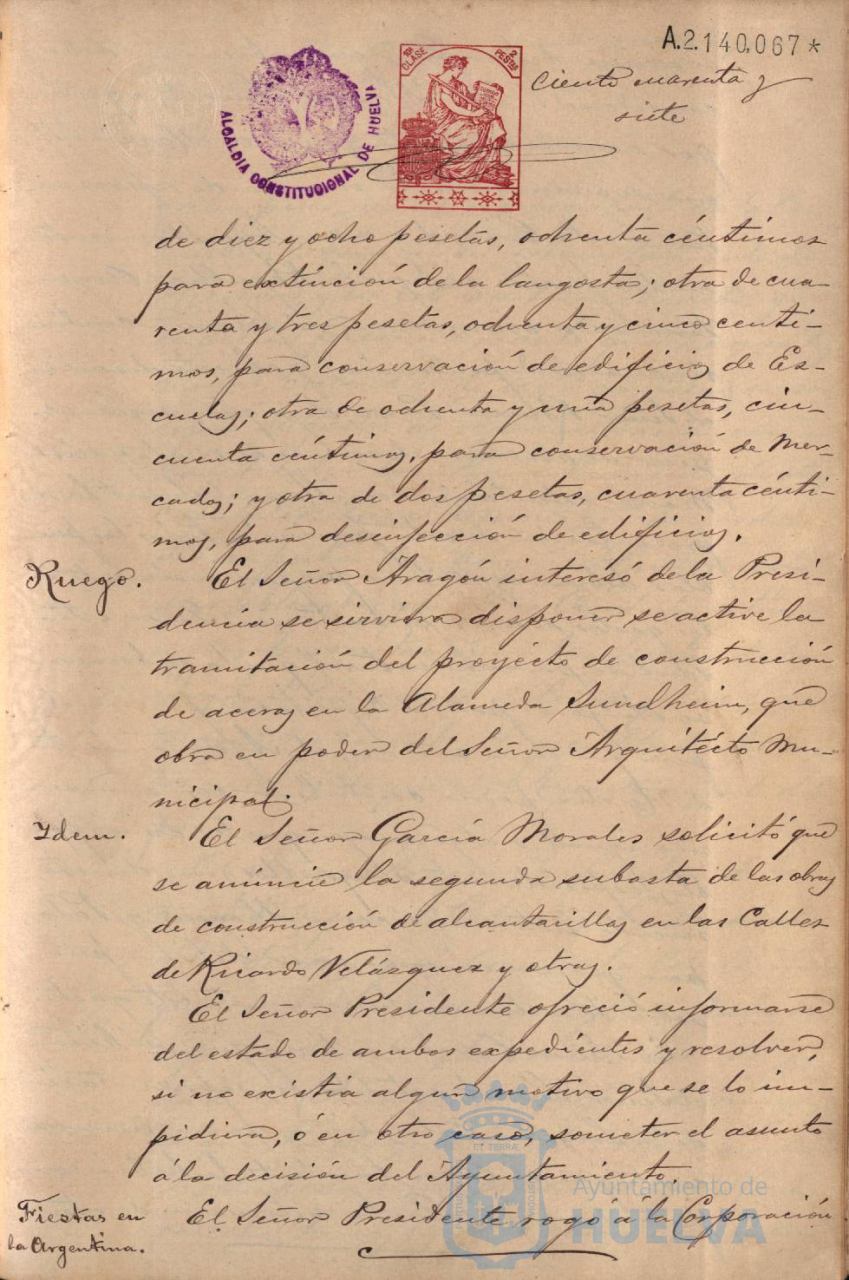 A.2.140,067*
ALCALDIA CONSTITUCIONAL DE HUELVA
10ª CLASE
2 PESETAS
Ciento cuarenta y
siete
de diez y ocho pesetas, ochenta céntimos
para extinción de la langosta; otra de cua-
renta y tres pesetas, ochenta y cinco centi-
mos, para conservación de edificios de Es-
cuelas; otra de ochenta y una pesetas, cin-
cuenta céntimos, para conservación de Mer-
cados; y otra de dos pesetas, cuarenta cénti-
mos, para desinfección de edificios.
Ruego.
El Señor Aragón interesó de la Presi-
dencia se sirviera disponer se active la
tramitación del proyécto de construcción
de aceras en la Alameda Sundheim, que
obra en poder del Señor Arquitécto Mu-
nicipal.
Idem.
El Señor García Morales solicitó que
se anúncie la segunda subasta de las obras
de construcción de alcantarillas en las Calles
de Ricardo Velázquez y otras.
El Señor Presidente ofreció informarse
del estado de ambos expedientes y resolver,
si no existia algun motivo que se lo im-
pidiera, ó en otro caso, someter el asunto
á la decisión del Ayuntamiento.
Fiestas en
la Argentina.
El Señor Presidente rogó a la Corporación
Ayuntamiento de
HUELVA